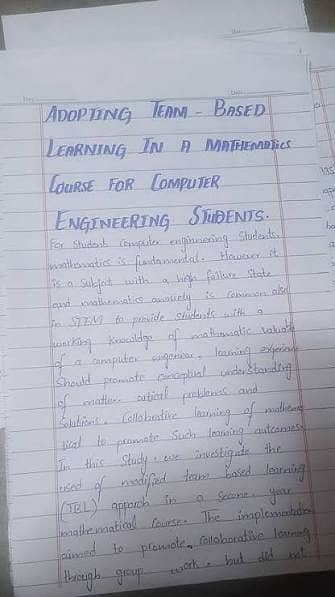 ADOPTING TEAM - BASED
LEARNING IN A MATHEMATICS
COURSE FOR COMPUTER
ENGINEERING STUDENTS.
For Student Computer enginnering Students,
mathematics is fundamental. However it
is a Subject with a high failure State
and mathematics anxiety is common also
in STEM to provide students with a
working knowledge of mathematic valuate
of a computer engineer. learning experience
Should promote conceptual understanding
of mathe. critical problems and
Solutions. Collobrative learning of mathema
tical to promate Such learning outcomes.
In this Study, we investigate the
used of modified team based learning
(TBL) approch in a Second year
mathematical Course. The implementation
aimed to promote, Collaborative learning
through group work. but did not